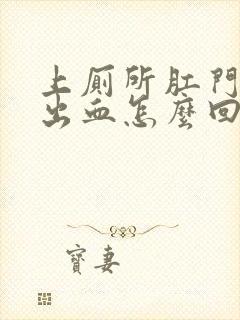 上厠所肛門
出血怎麼回
寶妻